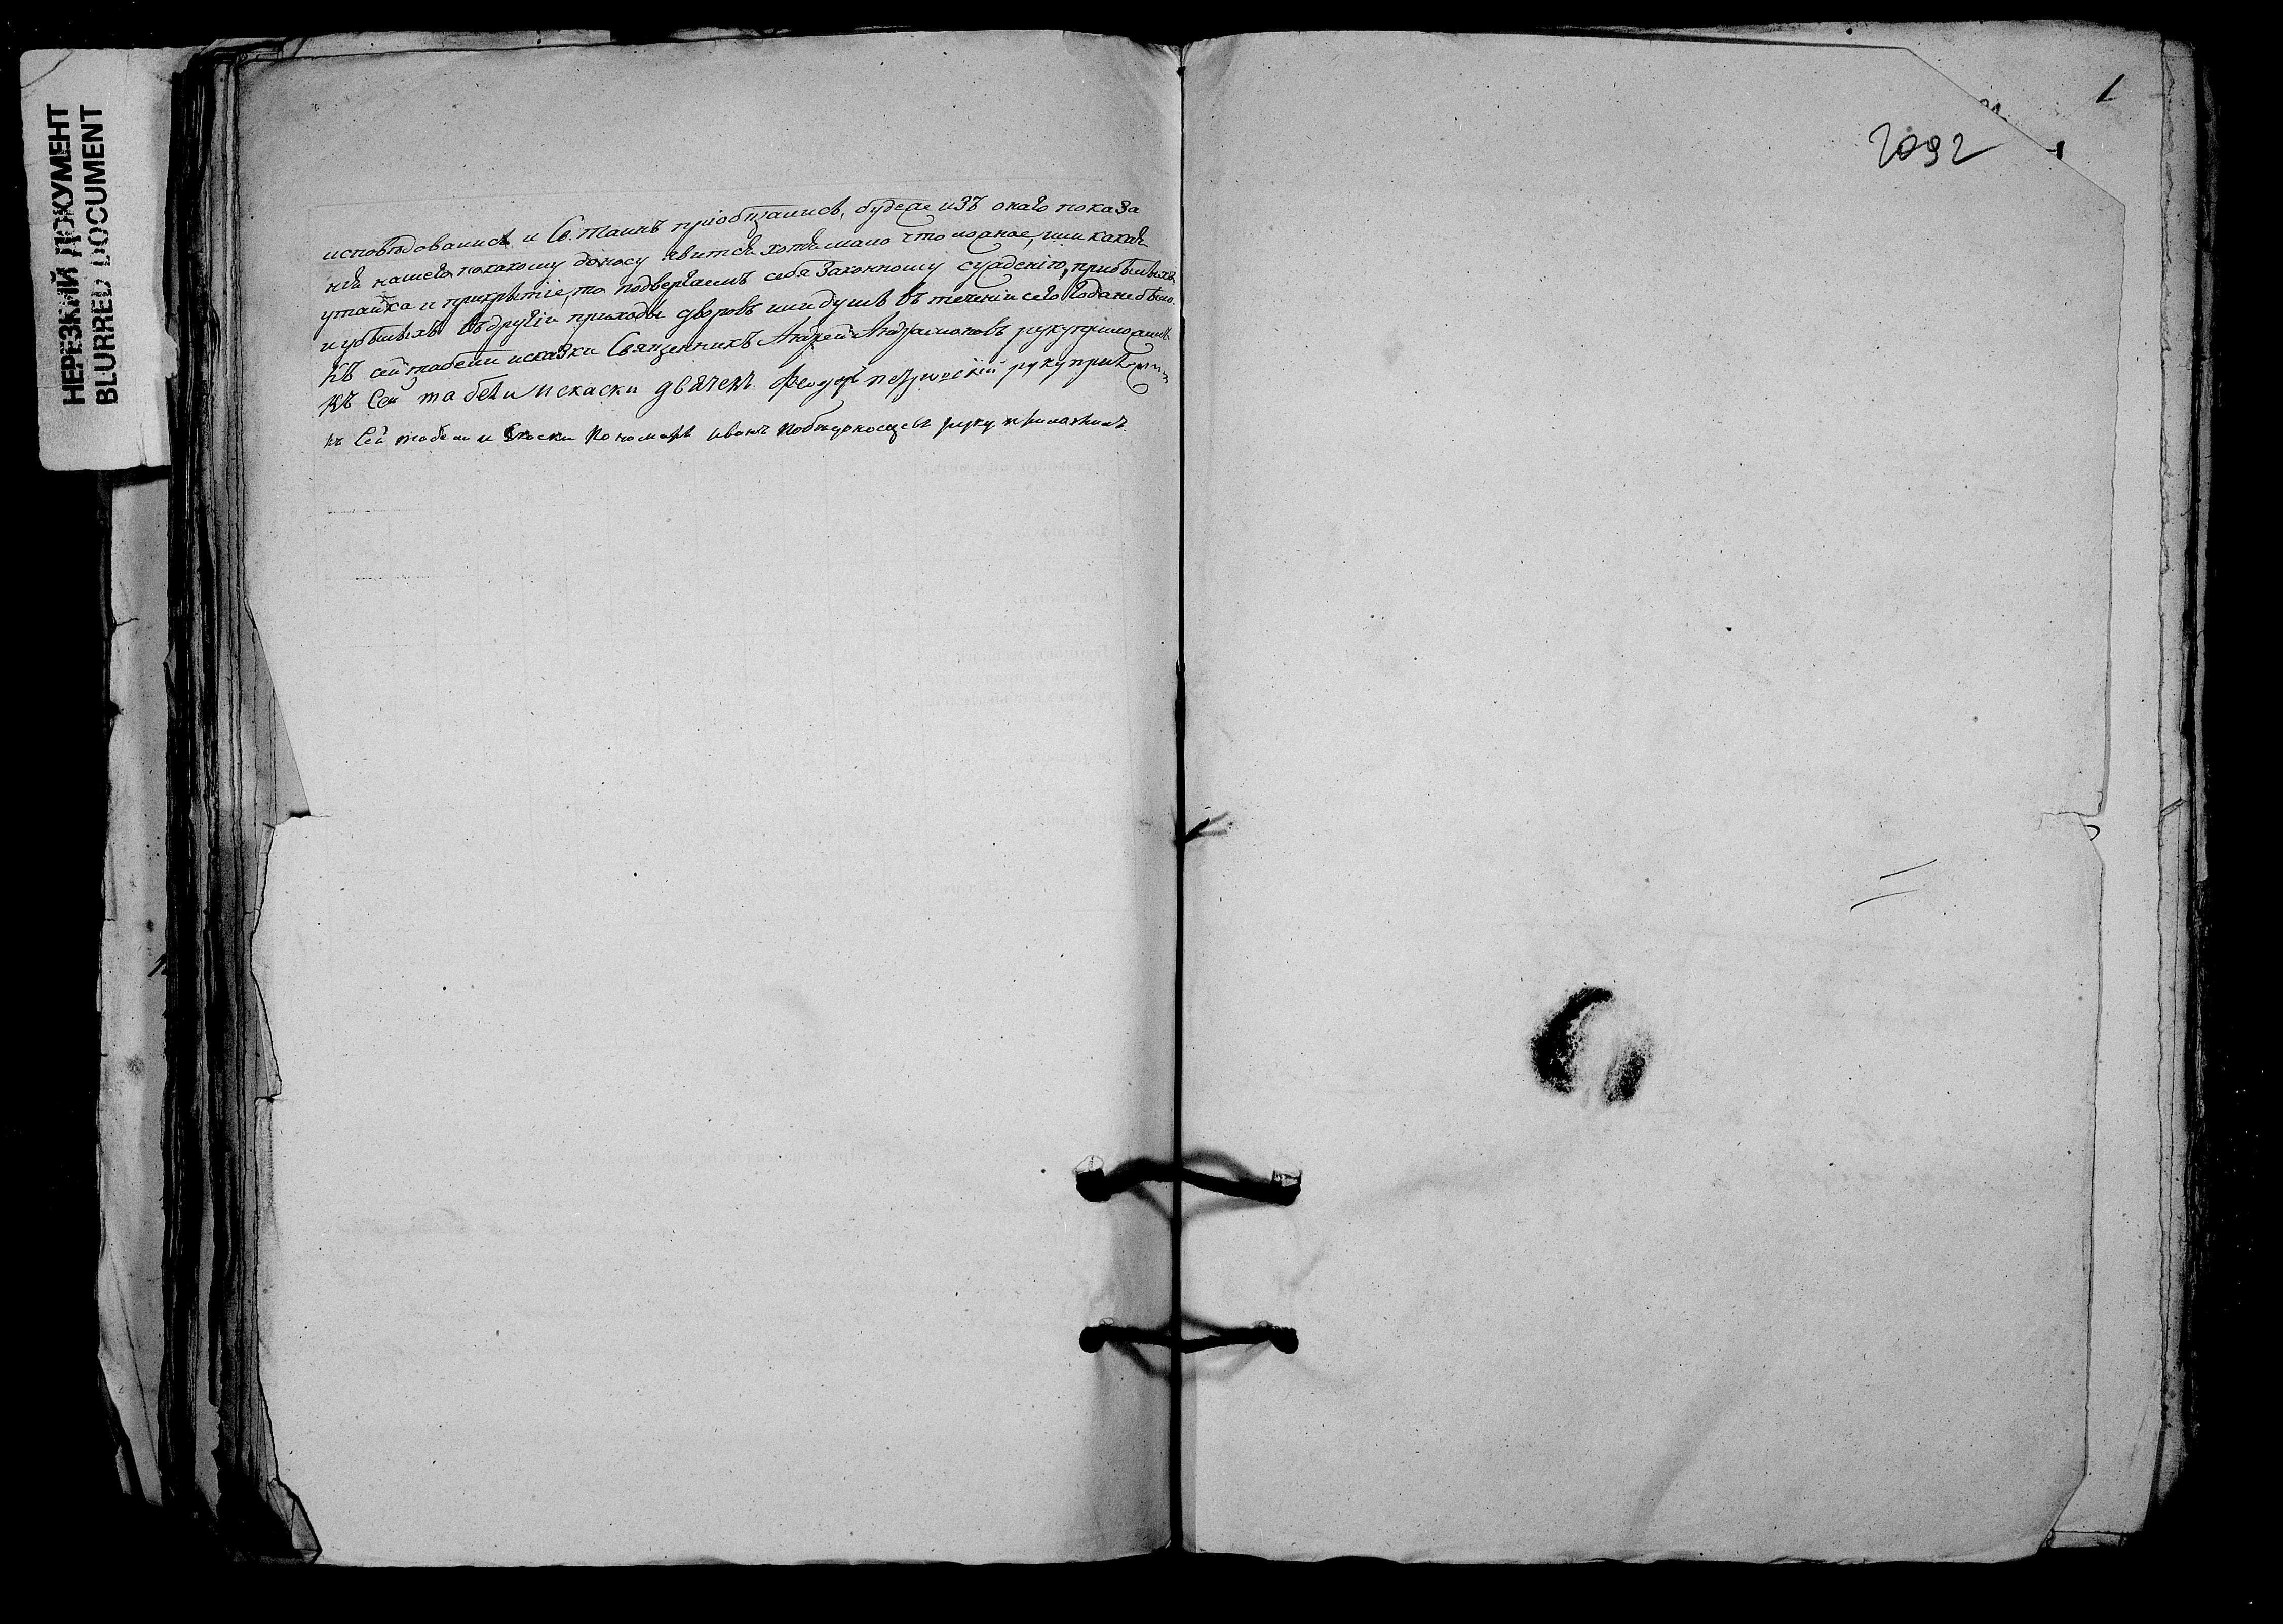 НЕРЕЗКИЙ ДОКУМЕНТ
BLURRED DOCUMENT
исповѣдовались и Св. Таинъ пріобщались, будеже изъ онаго показа
нія нашего покакому доносу явится хотя мало что ложное, или какая
утайка и прикрытіе, то подвергаемъ себя Законному сужденію, прибывшихъ
и убывшихъ въ другіи приходы дворовъ или душъ въ теченіи сего Года небыло.
Къ сей табели исказки Священникъ Андрей руку приложилъ
къ Сей табели искаски дьячекъ Феодор руку приложилъ
къ Сей табели и Скаски Пономарь иванъ руку приложилъ.
2092
1